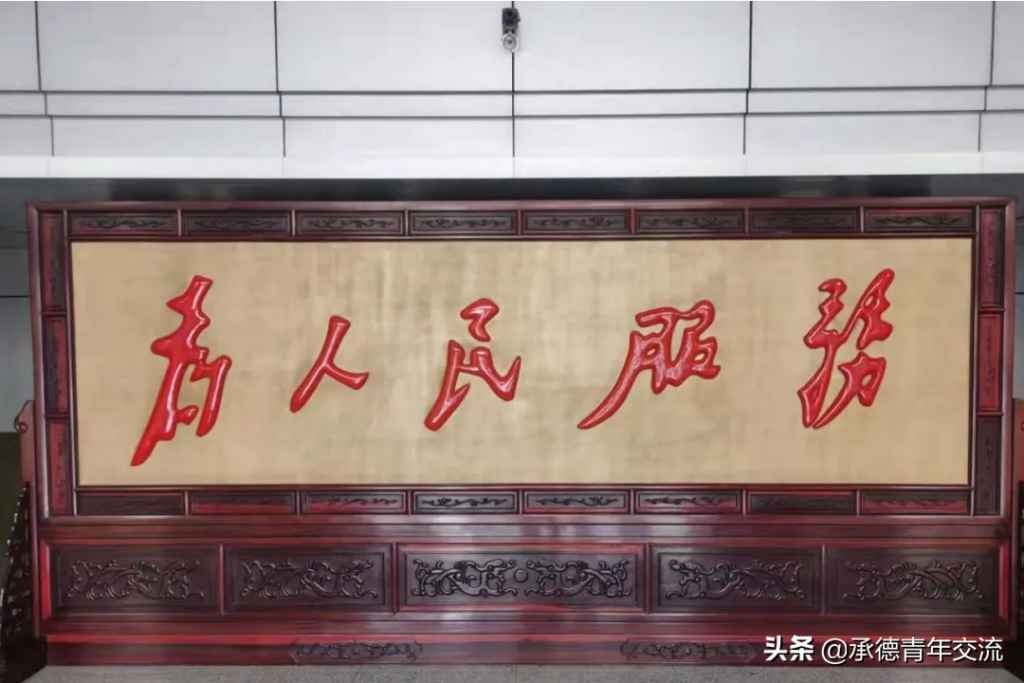 为人民服务
头条 @承德青年交流